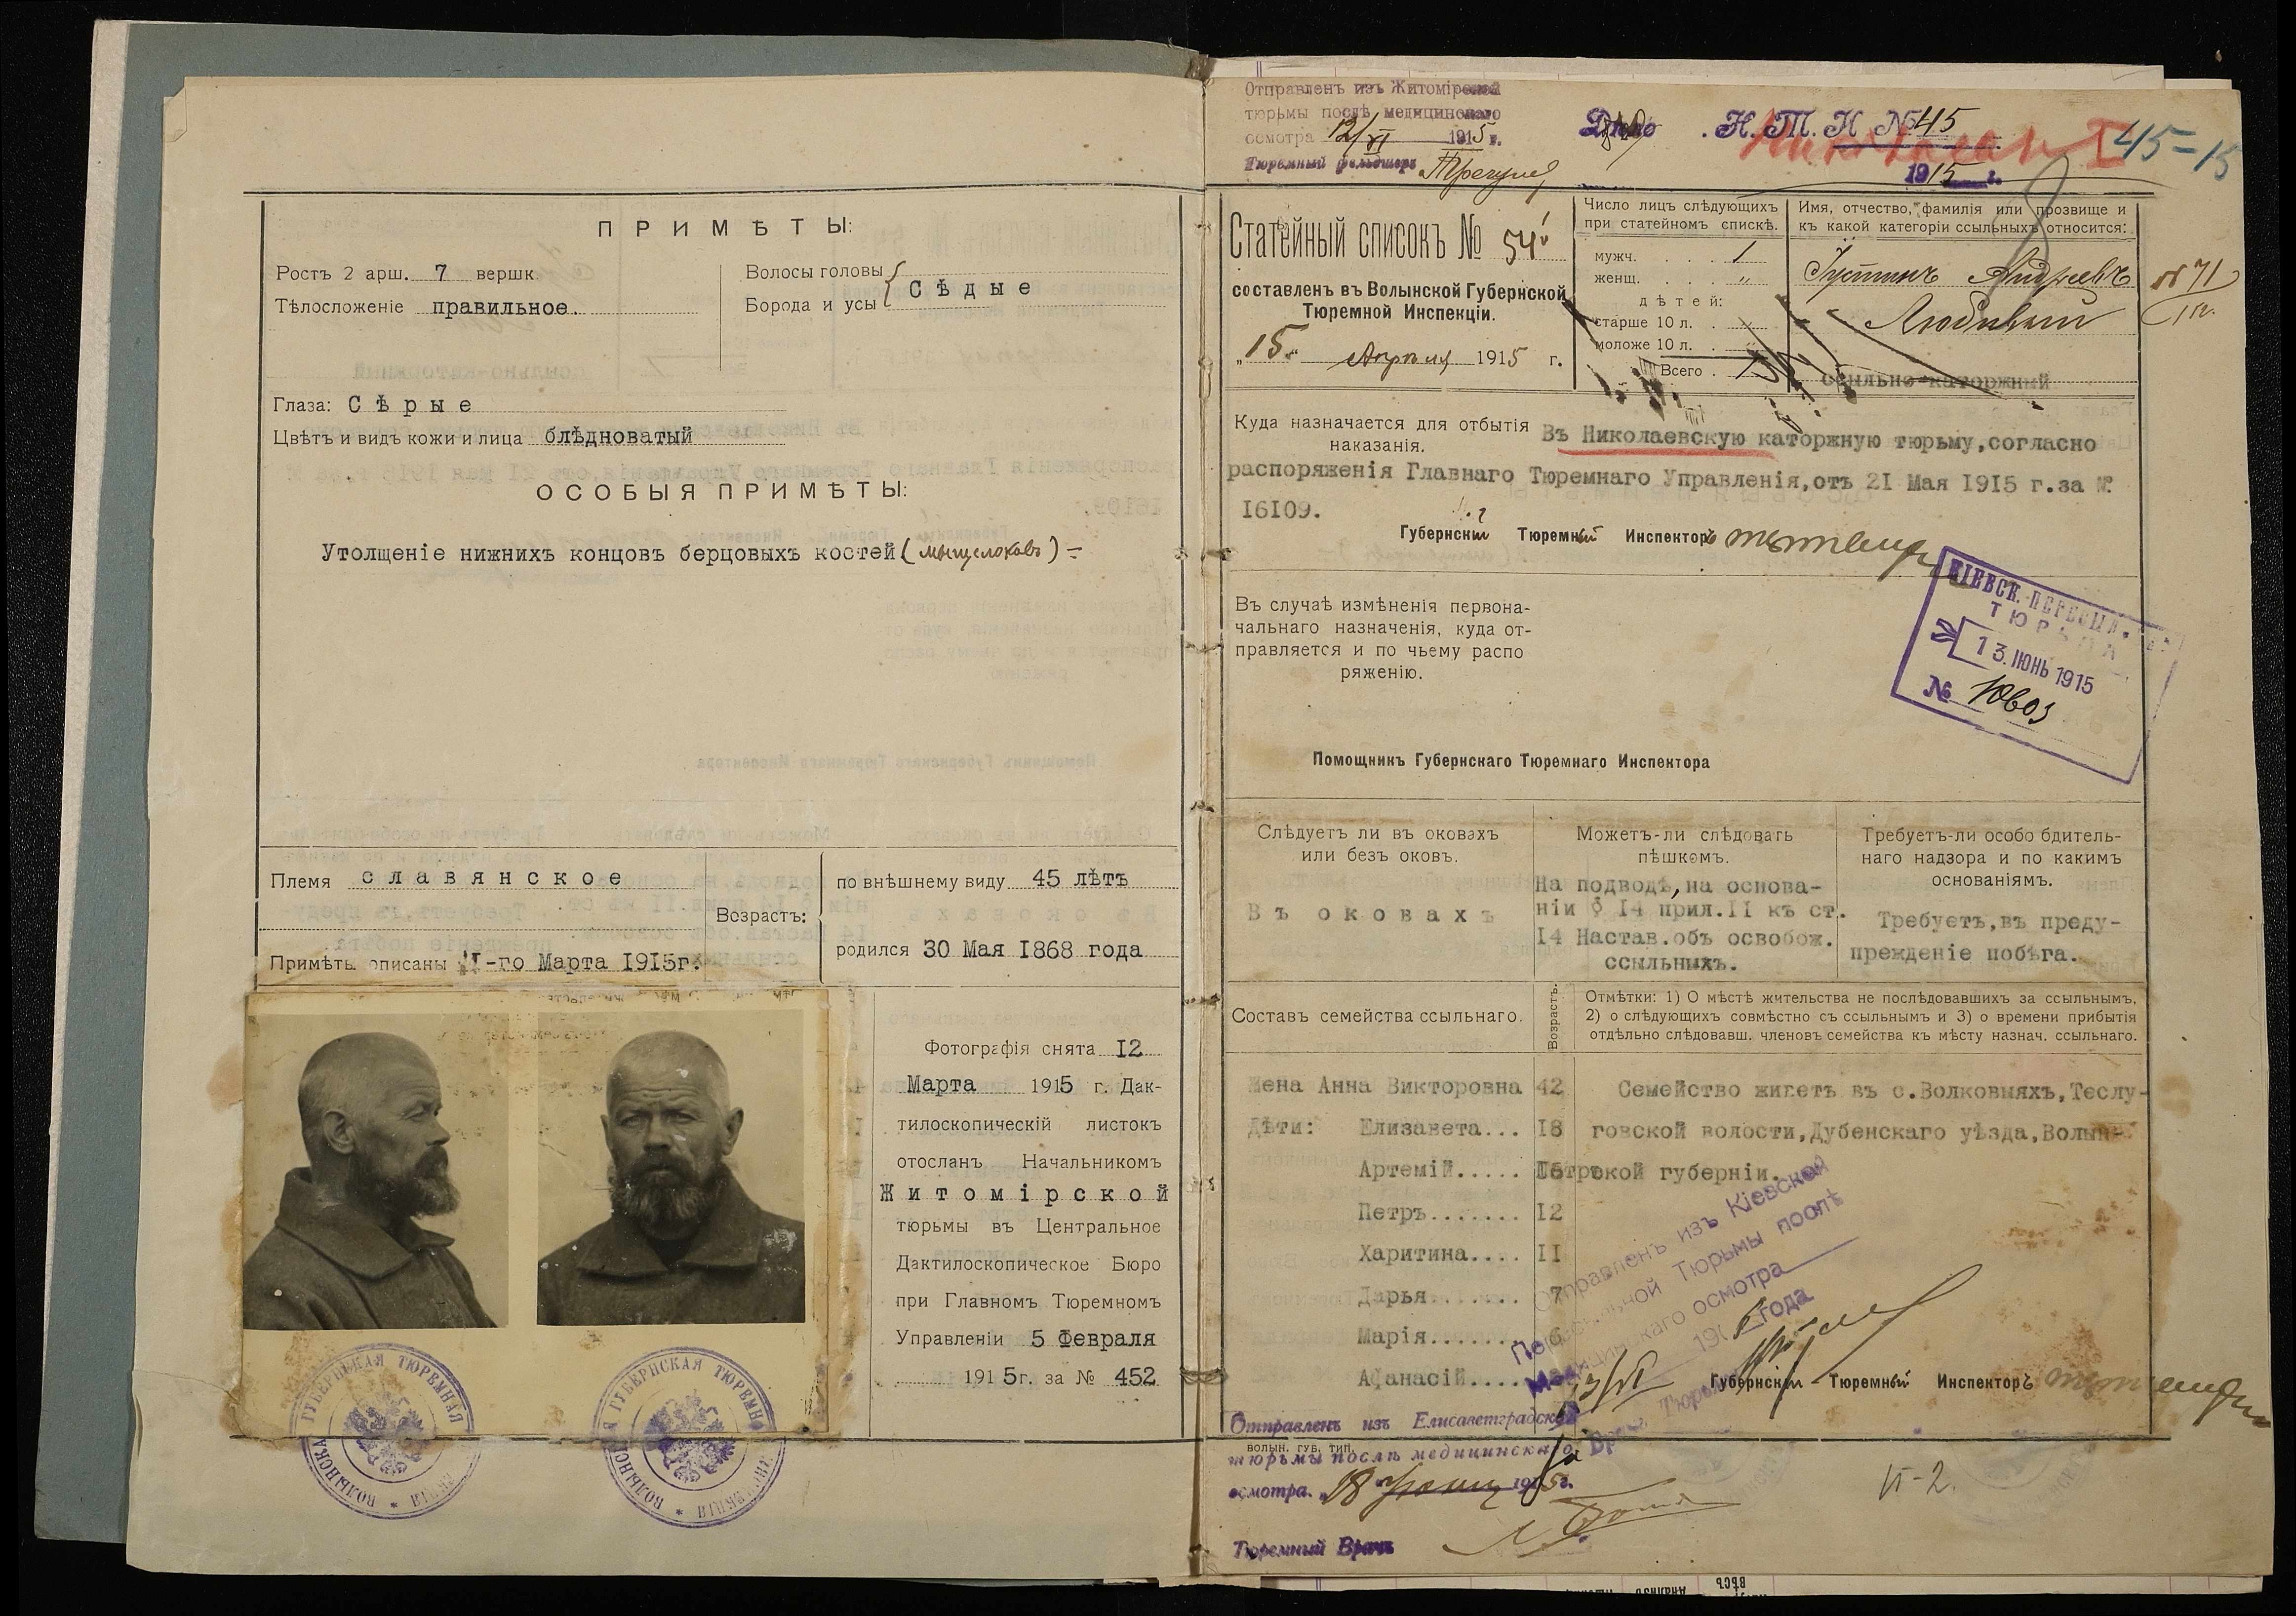 ПРИМѢТЫ:
Ростъ 2 арш. 7 вершк
Тѣлосложеніе правильное.
Волосы головы
Борода и усы
Сѣдые
Глаза: Сѣрые
Цвѣтъ и видъ кожи и лица блѣдноватый
ОСОБЫЯ ПРИМѢТЫ:
Утолщеніе нижнихъ концовъ берцовыхъ костей (мыщелоковъ) =
Племя славянское
Примѣты описаны -го Марта 1915г.
Возрастъ:
по внѣшнему виду 45 лѣтъ
родился 30 Мая 1868 года
Фотографія снята 12
Марта 1915 г. Дак-
тилоскопическій листокъ
отосланъ Начальникомъ
Житомірской
тюрьмы въ Центральное
Дактилоскопическое Бюро
при Главномъ Тюремномъ
Управленіи 5 Февраля
1915г. за № 452
Отправленъ изъ Житомірской
тюрьмы послѣ медицинскаго
осмотра 12/VI 1915 г.
Тюремный фельдшеръ
Дѣло Н. Т. Н №45
1915 г.
I 45=15
Статейный списокъ № 54
составленъ въ Волынской Губернской
Тюремной Инспекціи.
„15„ Апрѣля 1915 г.
Число лицъ слѣдующихъ
при статейномъ спискѣ.
мужч. . . . 1
женщ. . . . „
дѣтей:
старше 10 л. .
моложе 10 л. .
Всего . 1
Имя, отчество, фамилія или прозвище и
къ какой категоріи ссыльныхъ относится:
Іустинъ Андреевъ
Любивый
ссыльно-каторжный
№ 71
Куда назначается для отбытія
наказанія.
Въ Николаевскую каторжную тюрьму,согласно
распоряженія Главнаго Тюремнаго Управленія,отъ 21 Мая 1915 г.за №
16109.
Губернскій Тюремный Инспекторъ
КІЕВСК. ПЕРЕСЫЛ.
ТЮРЬМА
13.ІЮНЬ 1915
№ 10603
Въ случаѣ измѣненія первона-
чальнаго назначенія, куда от-
правляется и по чьему распо
ряженію.
Помощникъ Губернскаго Тюремнаго Инспектора
Слѣдуетъ ли въ оковахъ
или безъ оковъ.
Въ оковахъ
Можетъ-ли слѣдовать
пѣшкомъ.
На подводѣ,на основа-
ніи § 14 прил.II къ ст.
14 Настав.объ освобож.
ссыльныхъ.
Требуетъ-ли особо бдитель-
наго надзора и по какимъ
основаніямъ.
Требуетъ,въ преду-
прежденіе побѣга.
Составъ семейства ссыльнаго.
Возрастъ.
Отмѣтки: 1) О мѣстѣ жительства не послѣдовавшихъ за ссыльнымъ,
2) о слѣдующихъ совмѣстно съ ссыльнымъ и 3) о времени прибытія
отдѣльно слѣдовавш. членовъ семейства къ мѣсту назнач. ссыльнаго.
Жена Анна Викторовна 42
Дѣти: Елизавета... 18
Артемій.....
Петръ....... 12
Харитина.... 11
Дарья....... 7
Марія....... 6
Афанасій....
Семейство живетъ въ с.Волковыяхъ,Теслу-
говской волости,Дубенскаго уѣзда,Волын-
ской губерніи.
Отправленъ изъ Кіевской
Пересыльной Тюрьмы послѣ
Медицинскаго осмотра
191 года
13/VI
Губернскій Тюремный Инспекторъ
Врачъ Тюрьмы
Отправленъ изъ Елисаветградской
ВОЛЫН. ГУБ. ТИП.
тюрьмы послѣ медицинскаго
осмотра „18 Іюня 1915г.
Тюремный Врачъ
VI-2.
ВОЛЫНСКАЯ ГУБЕРНСКАЯ ТЮРЕМНАЯ ИНСПЕКЦІЯ
ВОЛЫНСКАЯ ГУБЕРНСКАЯ ТЮРЕМНАЯ ИНСПЕКЦІЯ